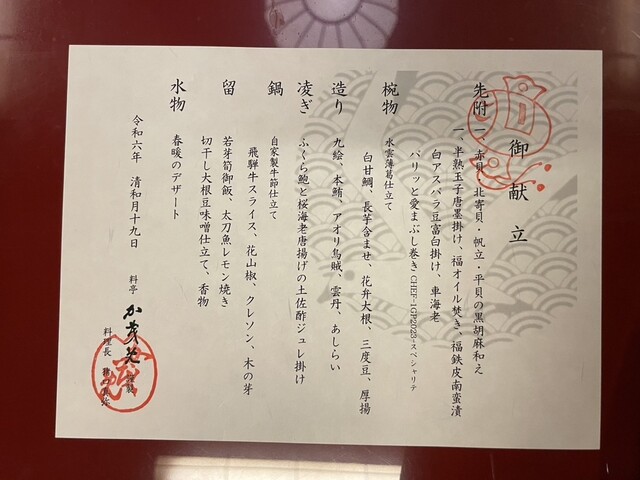 御献立
先附 一、赤貝・北寄貝・帆立・平貝の黒胡麻和え
一、半熟玉子唐墨掛け、福オイル焚き、福鉄皮南蛮漬
白アスパラ豆富白掛け、車海老
パリッと愛まぶし巻き CHEF-1GP2023・スペシャリテ
椀物
水雲薄葛仕立て
白甘鯛、長芋含ませ、花弁大根、三度豆、厚揚
造り 九絵、本鮪、アオリ烏賊、雲丹、あしらい
凌ぎ ふくら鮑と桜海老唐揚げの土佐酢ジュレ掛け
鍋
自家製牛節仕立て
飛騨牛スライス、花山椒、クレソン、木の芽
留 若芽筍御飯、太刀魚レモン焼き
切干し大根豆味噌仕立て、香物
水物 春暖のデザート
令和六年 清和月十九日
料亭
料理長